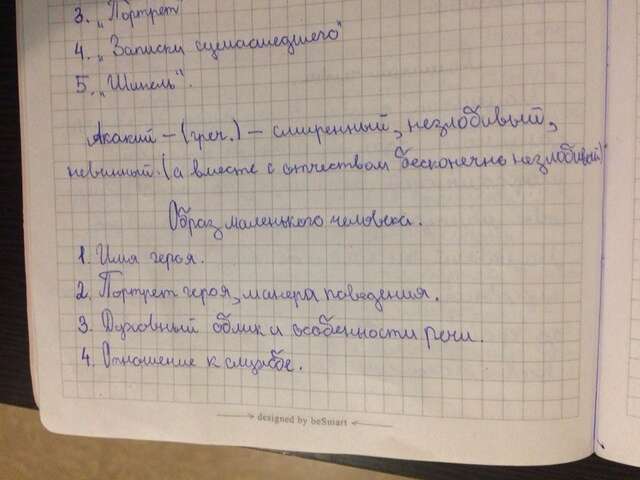 3. „Портрет"
4. „Записки сумасшедшего"
5. „Шинель".
Акакий – (греч.) – смиренный, незлобивый,
невинный. (а вместе с отчеством бесконечно незлобивый)
Образ маленького человека.
1. Имя героя.
2. Портрет героя, манера поведения.
3. Духовный облик и особенности речи.
4. Отношение к службе.
designed by beSmart